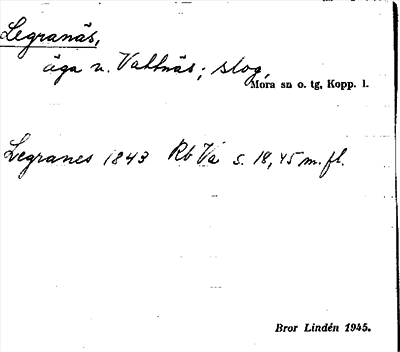 Legranäs,
äga n. Vattnäs; slog,
Mora sn o. tg, Kopp. l.
Legranes 1843 Rb Va s. 18, 45 m. fl.
Bror Lindén 1945.